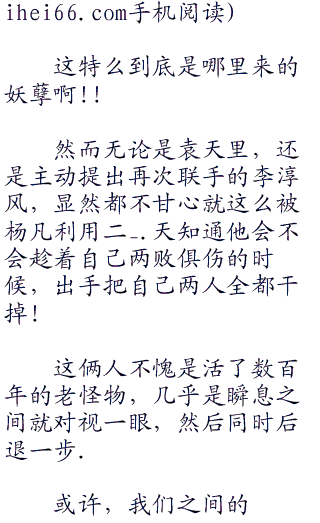 ihei66.com手机阅读)
这特么到底是哪里来的
妖孽啊!!
然而无论是袁天里，还
是主动提出再次联手的李淳
风，显然都不甘心就这么被
杨凡利用二_.天知通他会不
会趁着自己两败俱伤的时
候，出手把自己两人全都干
掉!
这俩人不愧是活了数百
年的老怪物，几乎是瞬息之
间就对视一眼，然后同时后
退一步.
或许，我们之间的